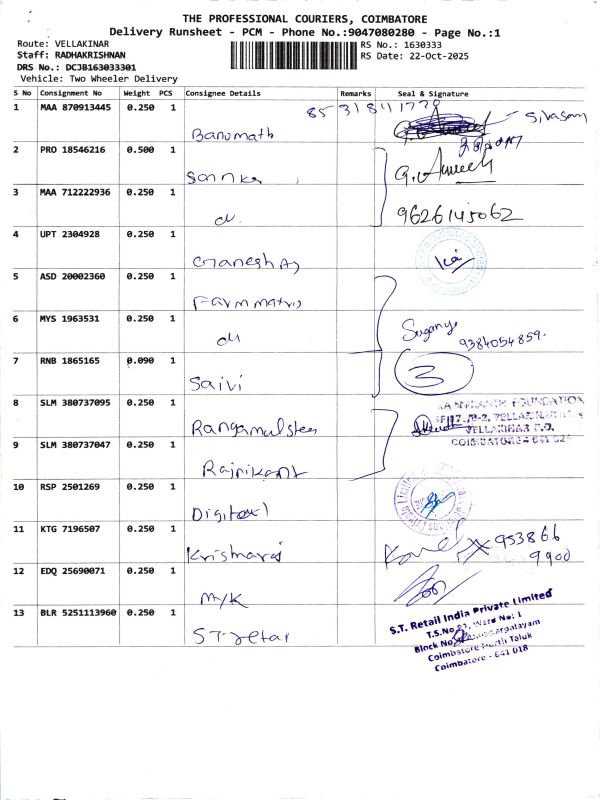 THE PROFESSIONAL COURIERS, COIMBATORE
Delivery Runsheet - PCM - Phone No.:9047080280 - Page No.:1
Route: VELLAKINAR
RS No.: 1630333
Staff: RADHAKRISHNAN
RS Date: 22-Oct-2025
DRS No.: DCJB163033301
Vehicle: Two Wheeler Delivery
S No Consignment No Weight PCS Consignee Details Remarks Seal & Signature
1 MAA 870913445 0.250 1 8531841770
Banumath
2 PRO 18546216 0.500 1
3 MAA 712222936 0.250 1
9626145062
4 UPT 2304928 0.250 1
5 ASD 20002360 0.250 1
6 MYS 1963531 0.250 1
Sugany
9384054859.
7 RNB 1865165 0.090 1
3
Saivi
8 SLM 380737095 0.250 1
FOUNDATION
VELLAKINAR P.O.
COIMBATORE - 641 029
9 SLM 380737047 0.250 1
Rajnikant
10 RSP 2501269 0.250 1
Digital
11 KTG 7196507 0.250 1
953866
9900
Krishnaraj
12 EDQ 25690071 0.250 1
M/K
13 BLR 5251113960 0.250 1
S.T. Retail India Private Limited
T.S.No. Ward No: 1
Block No.
Coimbatore North Taluk
Coimbatore - 641 018